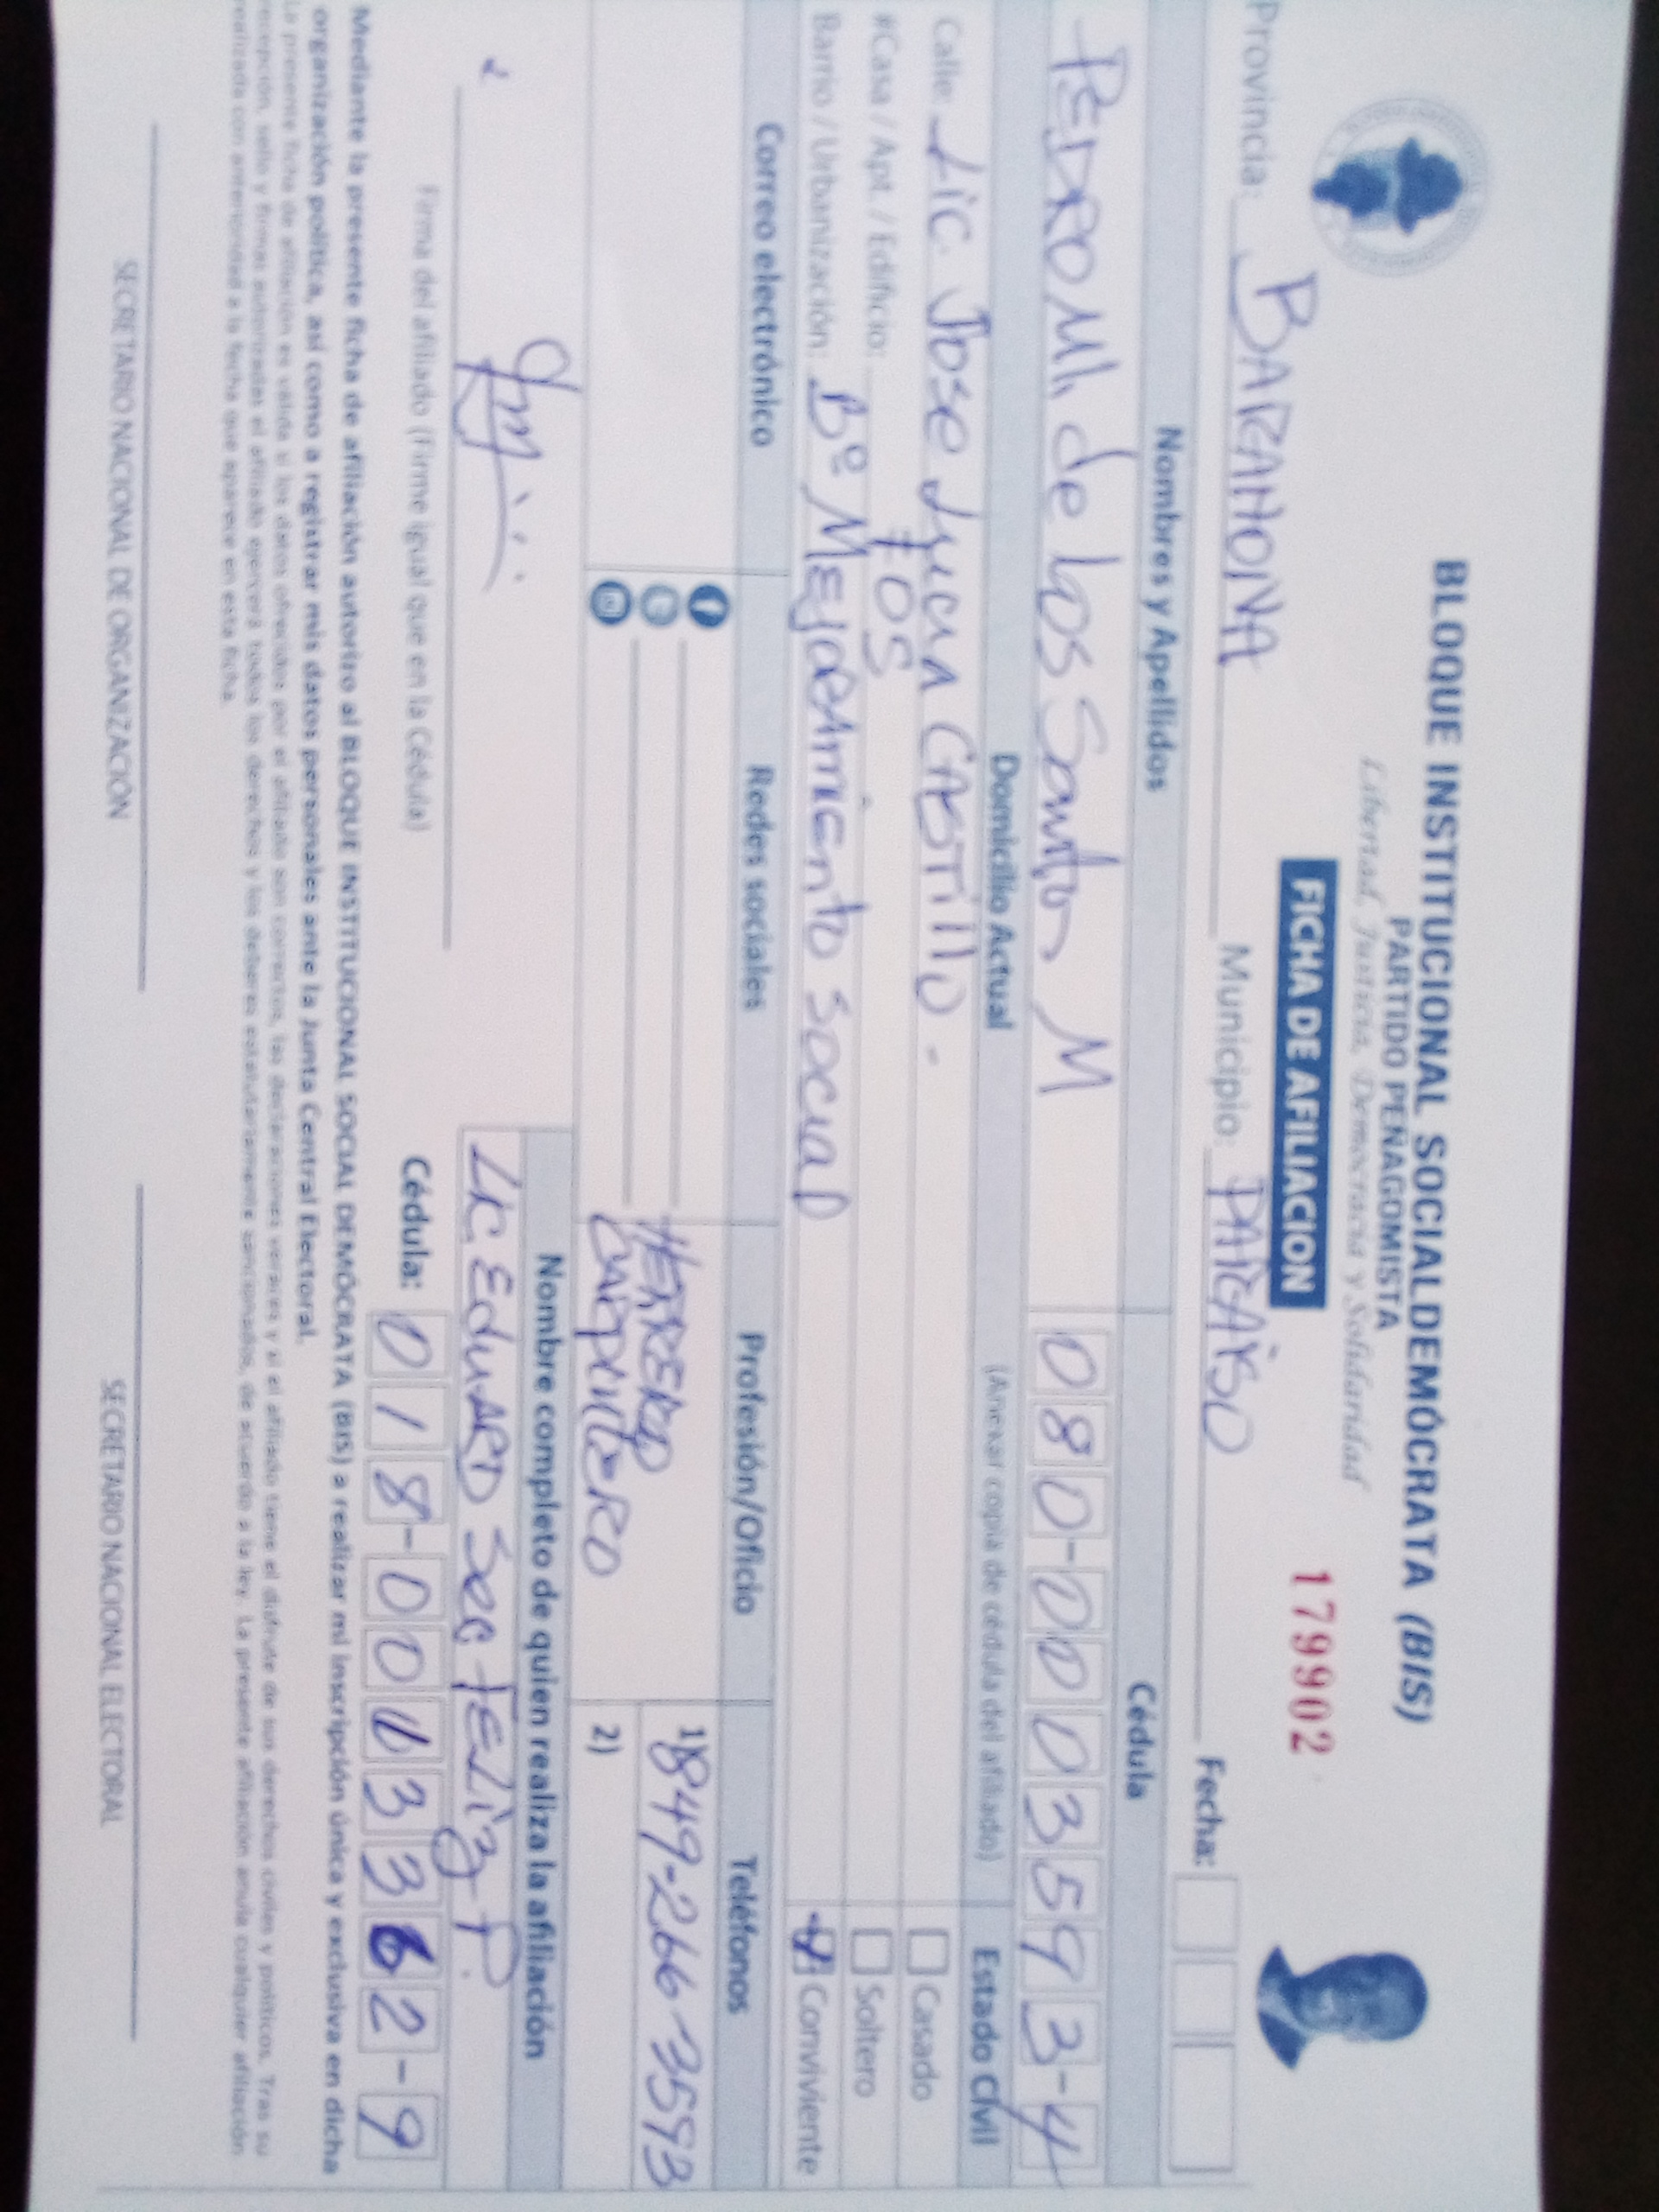 BLOQUE INSTITUCIONAL SOCIALDEMÓCRATA (BIS)
PARTIDO PEÑAGOMISTA
Libertad, Justicia, Democracia y Solidaridad
FICHA DE AFILIACION
179902
Provincia: BARAHONA Municipio: PARAÍSO Fecha:
Nombres y Apellidos Cédula
PEDRO Ml. de los Santos M 080-0003593-4
Domicilio Actual (Anexar copia de cédula del afiliado) Estado Civil
Calle: Lic. Jose Lucia CAstillo. Casado
#Casa / Apt. / Edificio: #05 Soltero
Barrio / Urbanización: Bº MEJORAMIENTO SOCIAL Conviviente
Correo electrónico Redes sociales Profesión/Oficio Teléfonos
HERRERO 1) 849-266-3593
CARPINTERO 2)
Nombre completo de quien realiza la afiliación
Lic. EduARD FELiz P.
Firma del afiliado (Firme igual que en la Cédula) Cédula: 018-0033629
Mediante la presente ficha de afiliación autorizo al BLOQUE INSTITUCIONAL SOCIAL DEMÓCRATA (BIS) a realizar mi inscripción única y exclusiva en dicha
organización política, así como a registrar mis datos personales ante la Junta Central Electoral.
La presente ficha de afiliación es válida si los datos ofrecidos por el afiliado son correctos, las declaraciones veraces y el afiliado tiene el disfrute de sus derechos civiles y políticos. Tras su
recepción, sello y firmas autorizadas el afiliado ejercerá todos los derechos y los deberes estatutariamente sancionados, de acuerdo a la ley. La presente afiliación anula cualquier afiliación
realizada con anterioridad a la fecha que aparece en esta ficha.
SECRETARIO NACIONAL DE ORGANIZACIÓN SECRETARIO NACIONAL ELECTORAL